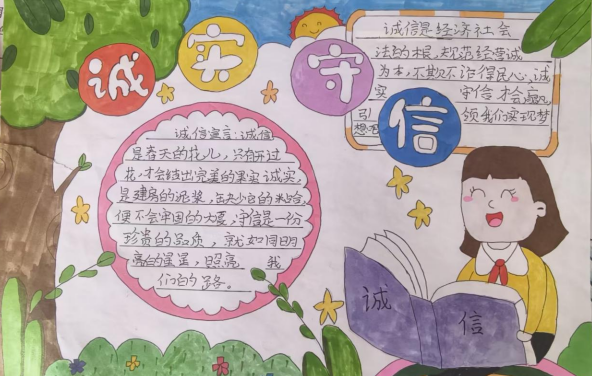 诚实守信
诚信是经济社会
法的根,规范经营诚
为本,不欺不诈得民心,诚
实 守信才会
引 领我们实现梦
想吧
诚信寓言:诚信
是春天的花儿,只有开过
花,才会结出完美的果实诚实,
是建房的泥浆,缺少它的
便不会牢固的大夏,守信是一份
珍贵的品质,就如同明
亮的星星,照亮 我
们的路。
诚
信